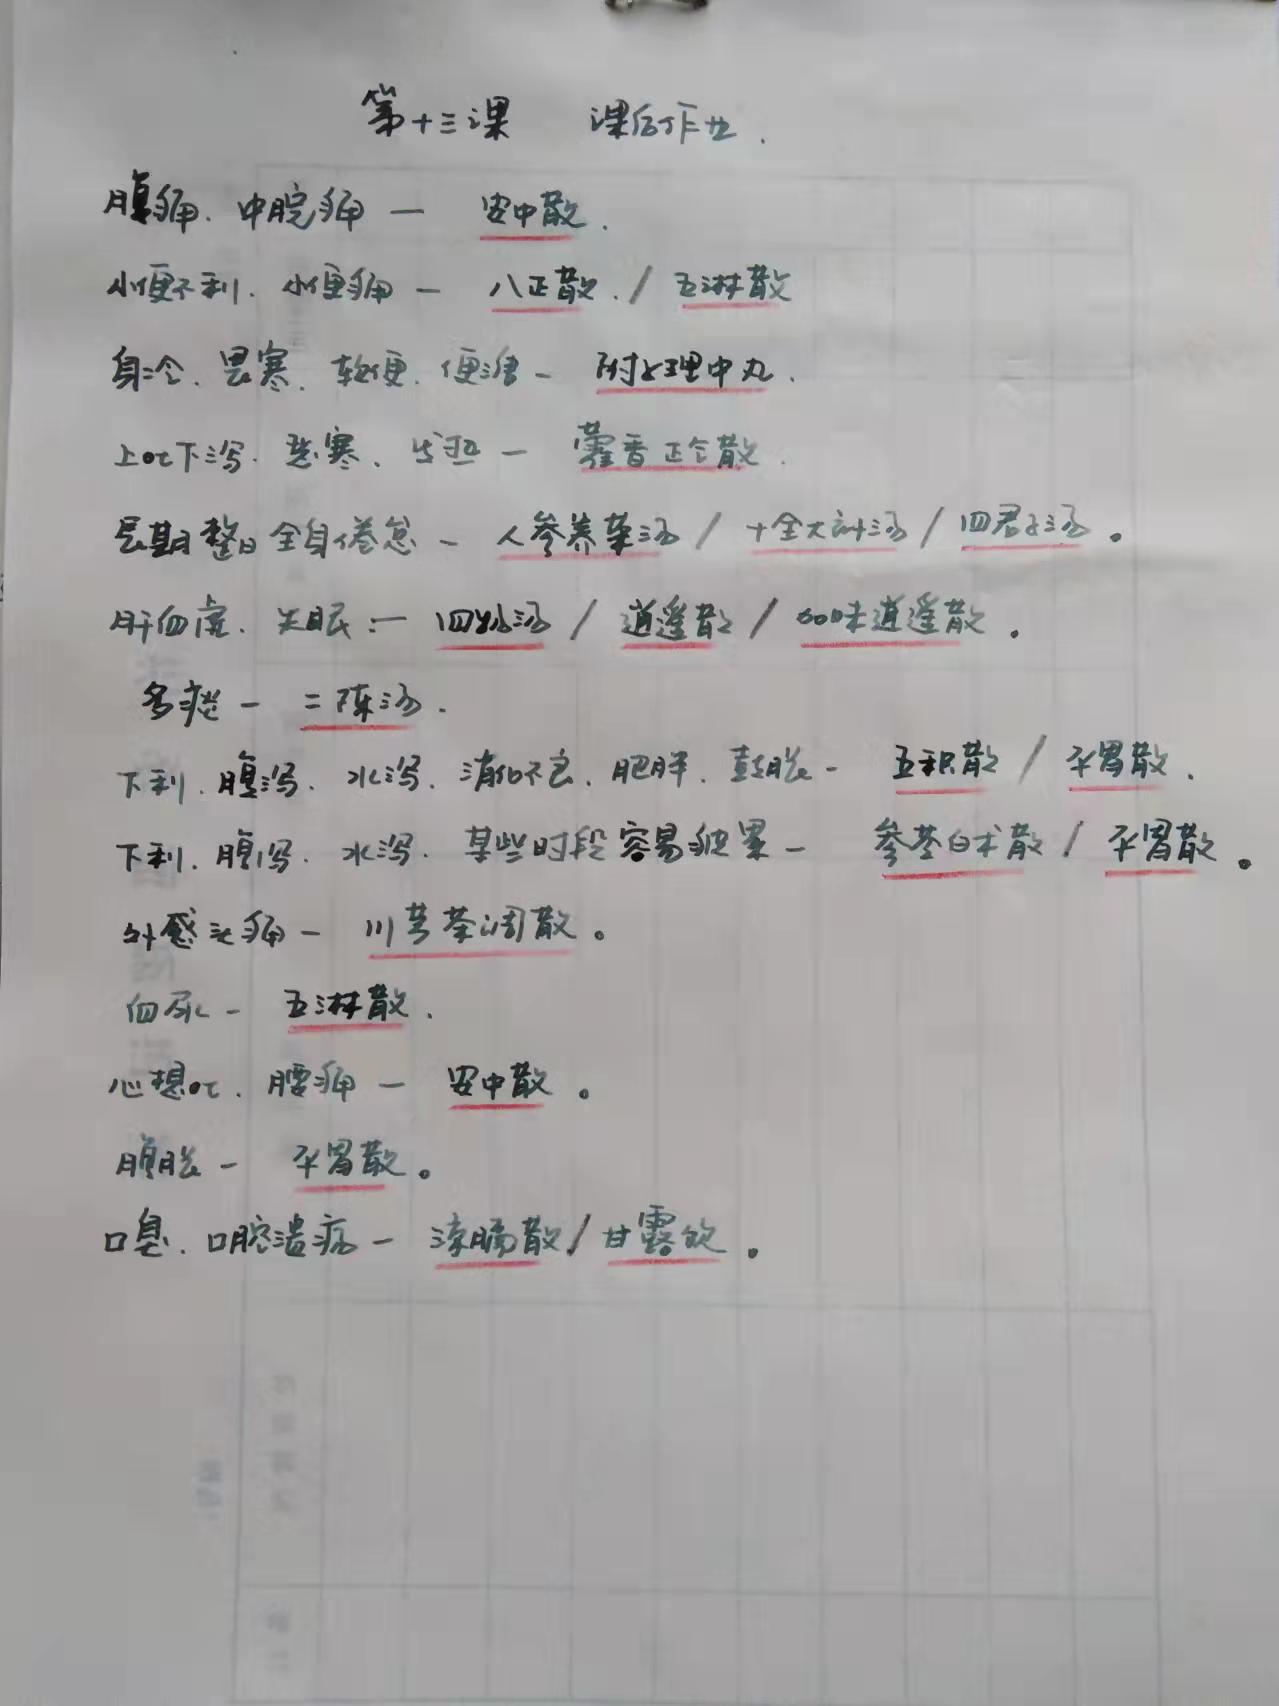 第十三课 课后作业.
腹痛、中脘痛 — 安中散.
小便不利、小便痛 — 八正散./五淋散
身冷、畏寒、软便、便溏 — 附子理中丸.
上吐下泻、恶寒、发热 — 藿香正气散.
长期整日全身倦怠 — 人参养荣汤/十全大补汤/四君子汤。
肝血虚、失眠:— 四物汤/逍遥散/加味逍遥散。
多痰 — 二陈汤.
下利、腹泻、水泻、消化不良、肥胖、鼓胀 — 五积散/平胃散.
下利、腹泻、水泻、某些时段容易疲累 — 参苓白术散/平胃散。
外感头痛 — 川芎茶调散。
血尿 — 五淋散.
心想吐、腰痛 — 安中散。
腹胀 — 平胃散。
口臭、口腔溃疡 — 凉膈散/甘露饮。